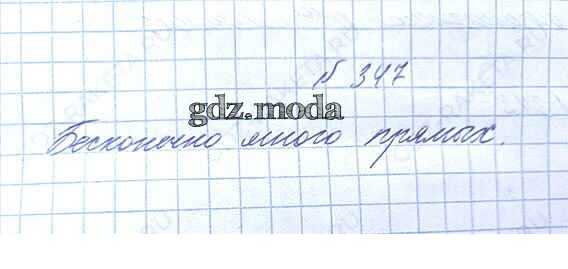 № 347
gdz.moda
Бесконечно много прямых.